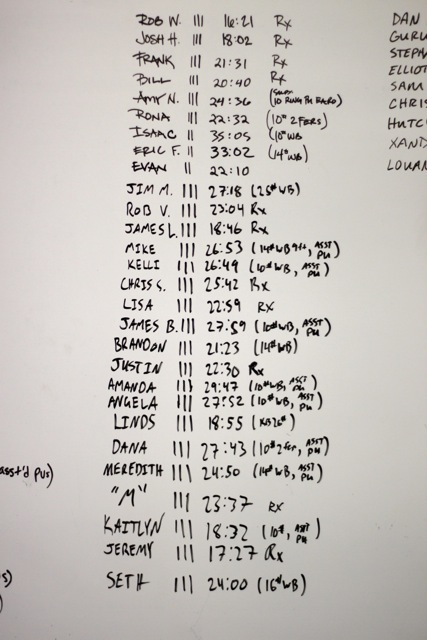 ROB W. III 16:21 Rx
JOSH H. III 18:02 Rx
FRANK III 21:31 Rx
BILL III 20:40 Rx
AMY N. III 24:36
RONA III 22:32 (10# 2FERS)
ISAAC II 35:05 (10# WB)
ERIC F. II 33:02 (14# WB)
EVAN II 22:10
JIM M. III 27:18 (25# WB)
ROB V. III 23:04 Rx
JAMES L. III 18:46 Rx
MIKE III 26:53 (14# WB 9ft, ASST PU)
KELLI III 26:49 (10# WB, ASST PU)
CHRIS S. III 25:42 Rx
LISA III 22:59 Rx
JAMES B. III 27:59 (10# WB, ASST PU)
BRANDON III 21:23 (14# WB)
JUSTIN III 22:30 Rx
AMANDA III 29:47 (10# WB, ASST PU)
ANGELA III 27:52 (10# WB, ASST PU)
LINDS III 18:55
DANA III 27:43 (10# 2fer, ASST PU)
MEREDITH III 24:50 (14# WB, ASST PU)
"M" III 23:37 Rx
KAITLYN III 18:32 (10#, ASST PU)
JEREMY III 17:27 Rx
SETH III 24:00 (16# WB)
DAN
GURU
STEPH
ELLIOT
SAM
CHRIS
HUTCH
XAND
LOUAN
asst'd pus)
s)
)